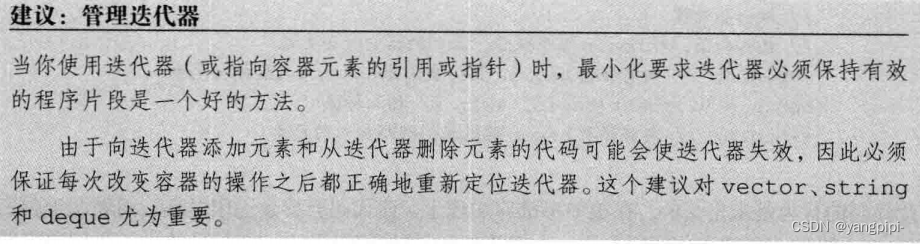 建议：管理迭代器
当你使用迭代器（或指向容器元素的引用或指针）时，最小化要求迭代器必须保持有效
的程序片段是一个好的方法。
由于向迭代器添加元素和从迭代器删除元素的代码可能会使迭代器失效，因此必须
保证每次改变容器的操作之后都正确地重新定位迭代器。这个建议对 vector、string
和 deque 尤为重要。
CSDN @yangpipi-